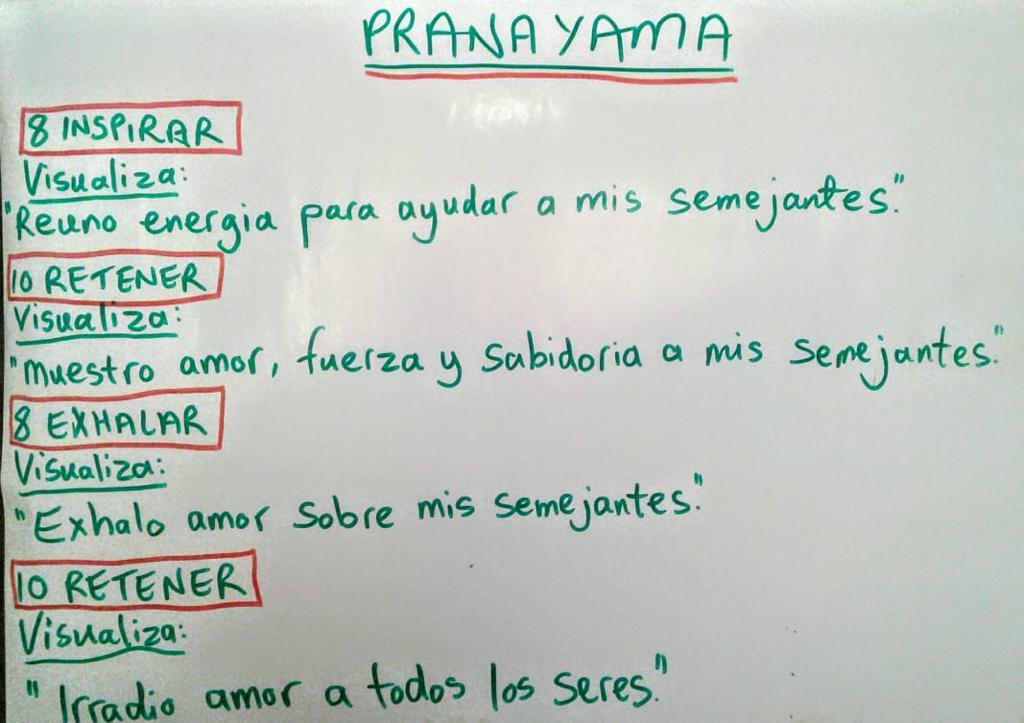 PRANAYAMA
8 INSPIRAR
Visualiza:
"Reuno energia para ayudar a mis semejantes."
10 RETENER
Visualiza:
"muestro amor, fuerza y Sabidoria a mis semejantes."
8 EXHALAR
Visualiza:
"Exhalo amor Sobre mis semejantes."
10 RETENER
Visualiza:
"Irradio amor a todos los seres."